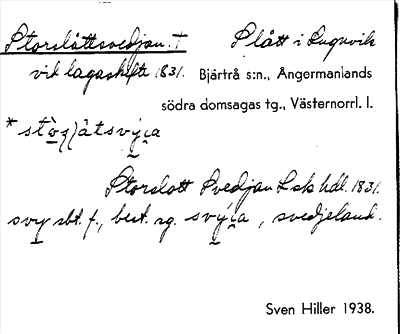 Storslåttsvedjan. † Slått i Lugnvik
vid lagaskifte 1831. Bjärtrå s:n., Ångermanlands
södra domsagas tg., Västernorrl. l.
Storslott Svedjan L sk hdl. 1831.
svy sbt. f., best. sg. svýi̯a, svedjeland.
Sven Hiller 1938.